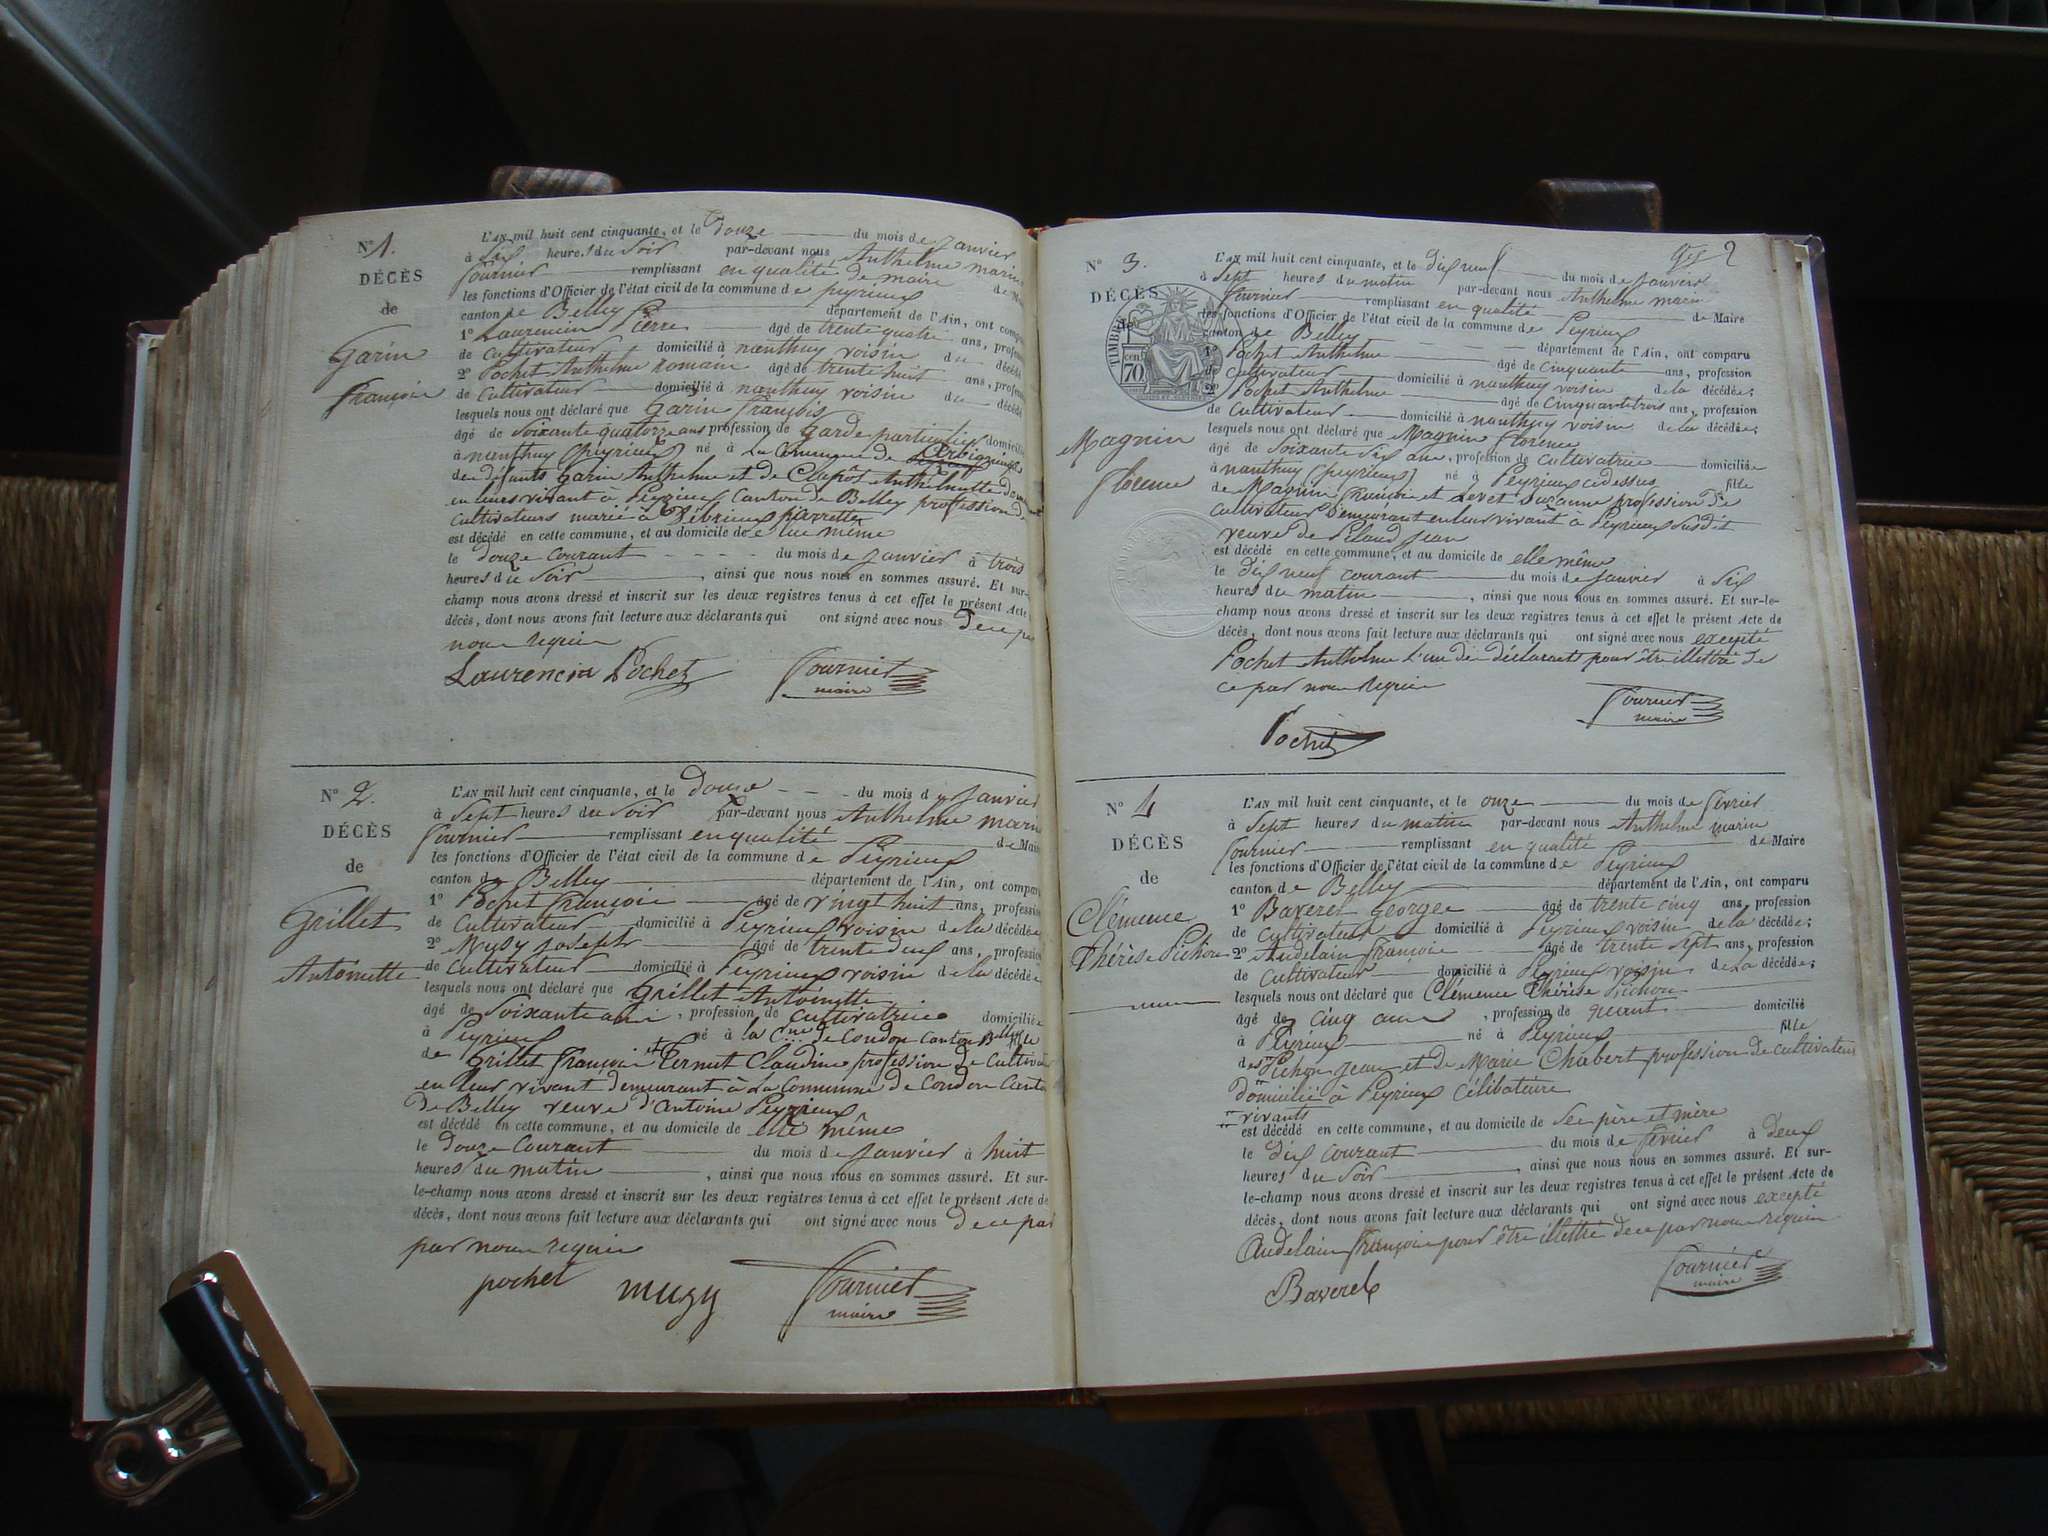 N° 1.
DÉCÈS
de
Garin
François
L'AN mil huit cent cinquante, et le douze du mois de janvier
à six heures du soir par-devant nous Anthelme marin
fournier remplissant en qualité de maire de Mai
les fonctions d'Officier de l'état civil de la commune de peyrieux
canton de Belley département de l'Ain, ont compa
1° Laurencin Pierre âgé de trente quatre ans, profess
de cultivateur domicilié à nanthuy voisin du décédé
2° Pochet Anthelme Romain âgé de trente huit ans, profes
de cultivateur domicilié à nanthuy voisin du décédé
lesquels nous ont déclaré que Garin François
âgé de soixante quatorze ans profession de Garde particulier domicilié
à nanthuy (peyrieux) né à La Commune de Arbignieu
des défunts Garin Anthelme et de Clapôt Anthelmette
en leurs vivant à Peyrieux Canton de Belley profession de
cultivateurs marié à pierrette
est décédé en cette commune, et au domicile de lui même
le douze courant du mois de janvier à trois
heures du soir , ainsi que nous nous en sommes assuré. Et sur-
champ nous avons dressé et inscrit sur les deux registres tenus à cet effet le présent Acte
décès, dont nous avons fait lecture aux déclarants qui ont signé avec nous de ce par
nous requis
Laurencin Pochet Fournier
maire
N° 2.
DÉCÈS
de
Grillet
Antoinette
L'AN mil huit cent cinquante, et le douze du mois de janvier
à sept heures du soir par-devant nous Anthelme marin
fournier remplissant en qualité de Maire
les fonctions d'Officier de l'état civil de la commune de Peyrieux
canton de Belley département de l'Ain, ont comparu
1° Pochet françois âgé de vingt huit ans, profession
de cultivateur domicilié à Peyrieux voisin de la décédée
2° Myzy joseph âgé de trente deux ans, profession
de cultivateur domicilié à Peyrieux voisin de la décédée
lesquels nous ont déclaré que Grillet Antoinette
âgé de Soixante ans , profession de cultivatrice domiciliée
à Peyrieux né à la Cne de Condon canton Belley fille
de Grillet françois et Pernut Claudine profession de Cultivat
en leur vivant demeurant à La Commune de Condon Canto
de Belley veuve d'antoine Peyrieux
est décédé en cette commune, et au domicile de elle même
le douze Courant du mois de janvier à huit
heures du matin , ainsi que nous nous en sommes assuré. Et sur-
le-champ nous avons dressé et inscrit sur les deux registres tenus à cet effet le présent Acte de
décès, dont nous avons fait lecture aux déclarants qui ont signé avec nous de ce par
par nous requis
pochet muzy Fournier
maire
2
N° 3.
DÉCÈS
de
Magnin
florence
TIMBRE
70 cen
L'AN mil huit cent cinquante, et le dix neuf du mois de janvier
à sept heures du matin par-devant nous Anthelme marin
fournier remplissant en qualité de Maire
les fonctions d'Officier de l'état civil de la commune de Peyrieux
canton de Belley département de l'Ain, ont comparu
1° Pochet Anthelme âgé de cinquante ans, profession
de Cultivateur domicilié à nanthuy voisin de la décédée;
2° Pochet Anthelme âgé de cinquante trois ans, profession
de Cultivateur domicilié à nanthuy voisin de la décédée;
lesquels nous ont déclaré que Magnin florence
âgé de soixante six ans, profession de cultivatrice domiciliée
à nanthuy (peyrieux) né à Peyrieux cidessus fille
de Magnin françois et Levet Suzanne profession de
cultivateur Demeurant en leur vivant à Peyrieux susdit
veuve de Pelaud jean
est décédé en cette commune, et au domicile de elle même
le dix neuf courant du mois de janvier à six
heures du matin , ainsi que nous nous en sommes assuré. Et sur-le-
champ nous avons dressé et inscrit sur les deux registres tenus à cet effet le présent Acte de
décès, dont nous avons fait lecture aux déclarants qui ont signé avec nous excepté
Pochet Anthelme l'un des déclarants pour être illettré de
ce par nous requis
Pochet Fournier
maire
N° 4
DÉCÈS
de
Clémence
Thérèse Pichon
L'AN mil huit cent cinquante, et le onze du mois de février
à sept heures du matin par-devant nous Anthelme marin
fournier remplissant en qualité de Maire
les fonctions d'Officier de l'état civil de la commune de Peyrieux
canton de Belley département de l'Ain, ont comparu
1° Baverel George âgé de trente cinq ans, profession
de cultivateur domicilié à Peyrieux voisin de la décédée;
2° Audelain françois âgé de trente sept ans, profession
de cultivateur domicilié à Peyrieux voisin de la décédée;
lesquels nous ont déclaré que Clémence Thérèse Pichon
âgé de cinq ans , profession de néant domicilié
à Peyrieux né à Peyrieux fille
des Pichon jean et de Marie Chabert profession de cultivateur
domicilié à Peyrieux Célibataire
vivants
est décédé en cette commune, et au domicile de ses père et mère
le dix courant du mois de février à deux
heures du soir , ainsi que nous nous en sommes assuré. Et sur-
le-champ nous avons dressé et inscrit sur les deux registres tenus à cet effet le présent Acte de
décès, dont nous avons fait lecture aux déclarants qui ont signé avec nous excepté
Audelain françois pour être illettré de ce par nous requis
Baverel Fournier
maire